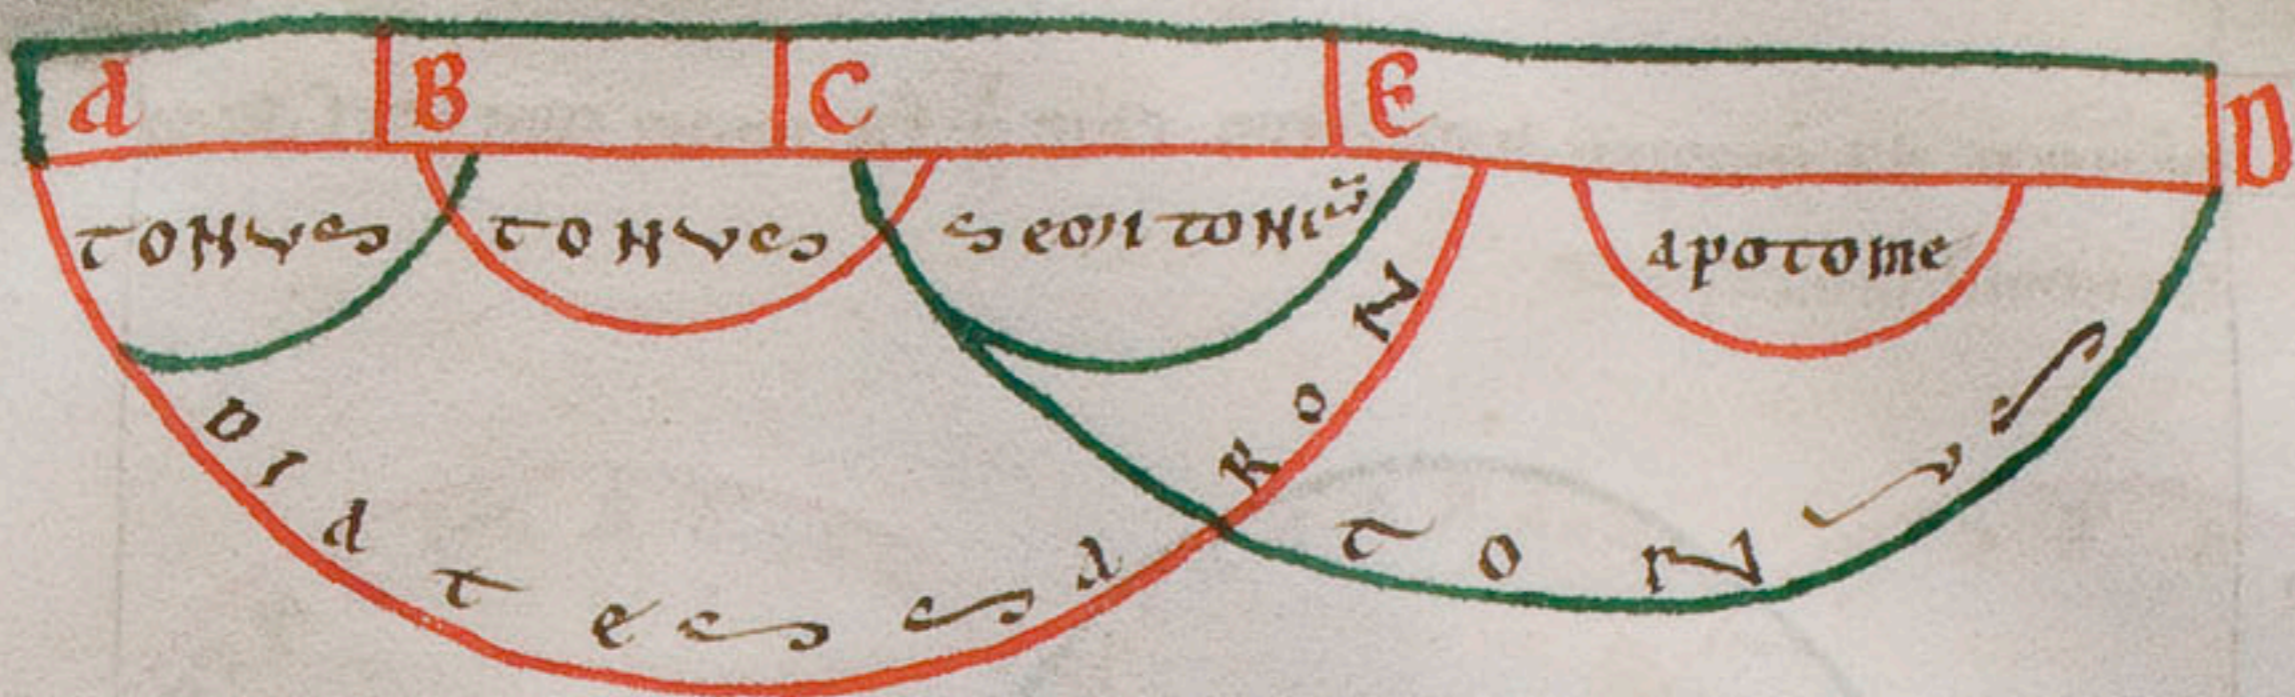 A B C E D
TONUS TONUS SEMITONIŪ APOTOME
DIATESSARON
TONUS